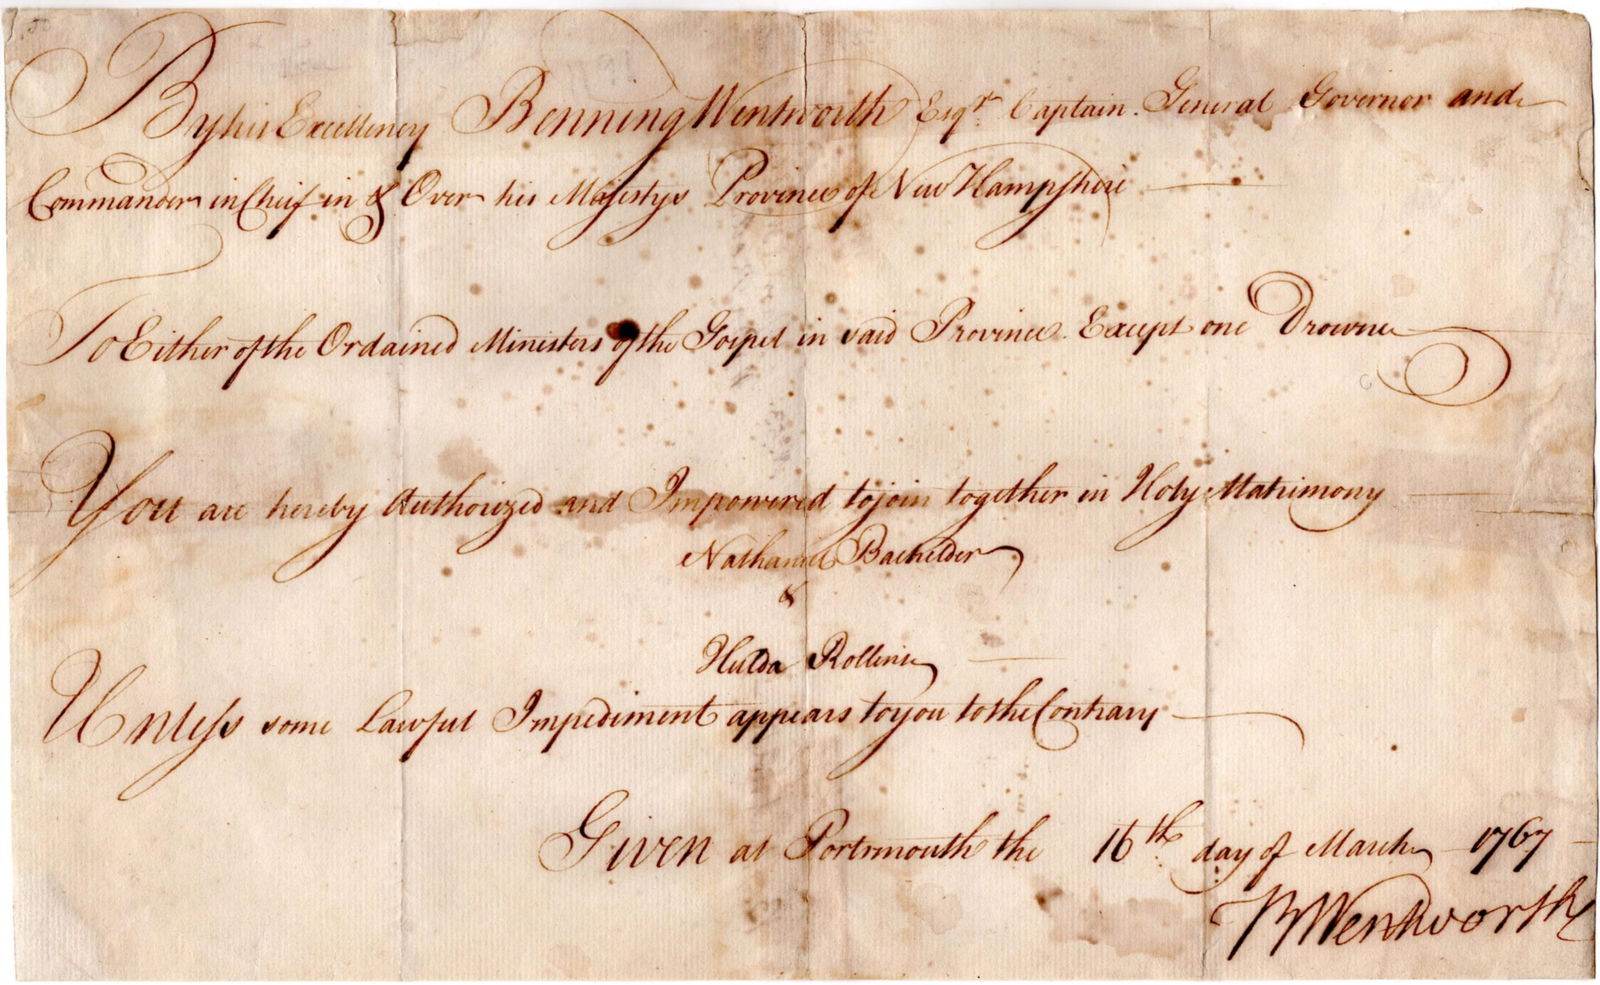 By his Excellency Benning Wentworth Esqr. Captain. General Governor and
Commander in Cheif in & Over his Majestys Province of New Hampshire
To Either of the Ordained Ministers of the Gospel in said Province. Except one Drowne
You are hereby Authorized and Impowered to join together in Holy Matrimony
Nathaniel Bachelder
&
Hulda Rollins
Unless some Lawful Impediment appears to you to the Contrary
Given at Portsmouth the 16th day of March 1767
BWentworth